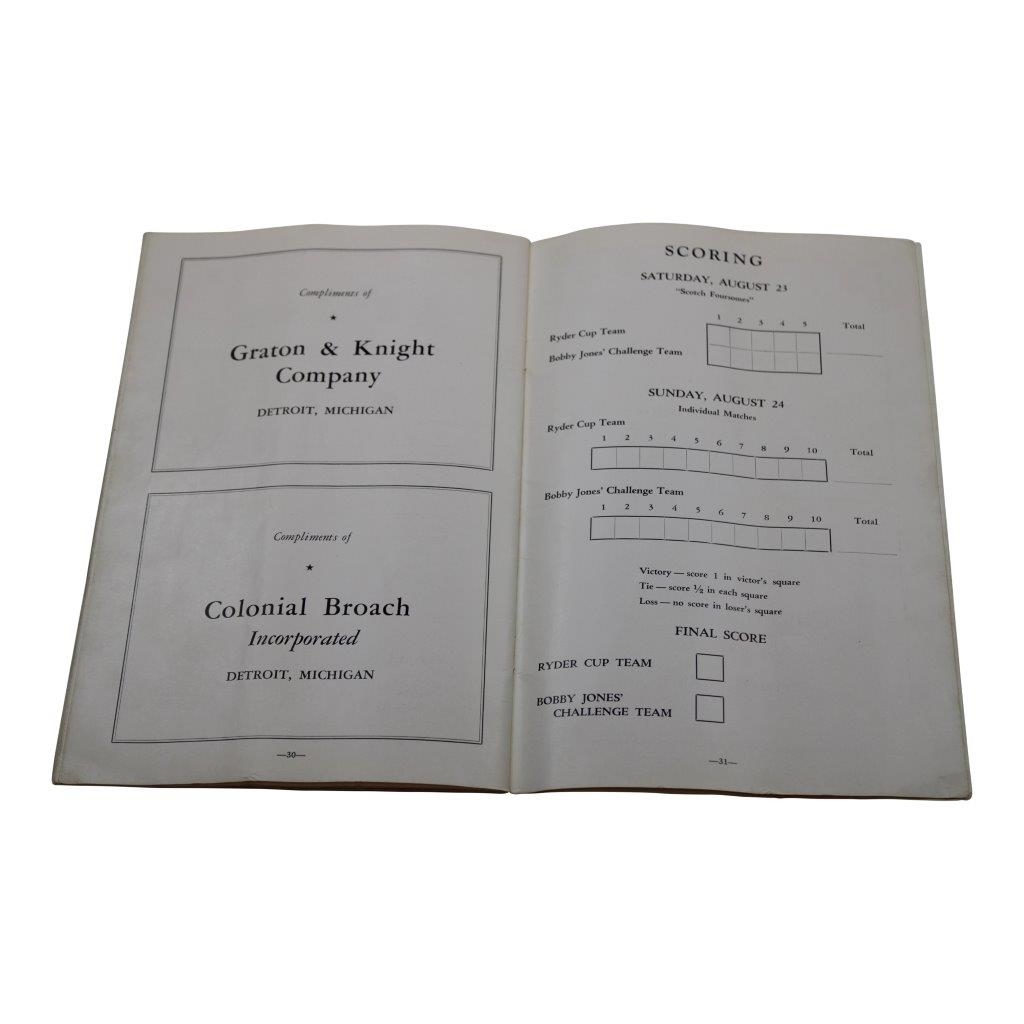 Compliments of
★
Graton & Knight
Company
DETROIT, MICHIGAN
Compliments of
★
Colonial Broach
Incorporated
DETROIT, MICHIGAN
—30—
SCORING
SATURDAY, AUGUST 23
"Scotch Foursomes"
1 2 3 4 5 Total
Ryder Cup Team
Bobby Jones' Challenge Team
SUNDAY, AUGUST 24
Individual Matches
Ryder Cup Team
1 2 3 4 5 6 7 8 9 10 Total
Bobby Jones' Challenge Team
1 2 3 4 5 6 7 8 9 10 Total
Victory — score 1 in victor's square
Tie — score ½ in each square
Loss — no score in loser's square
FINAL SCORE
RYDER CUP TEAM
BOBBY JONES'
CHALLENGE TEAM
—31—